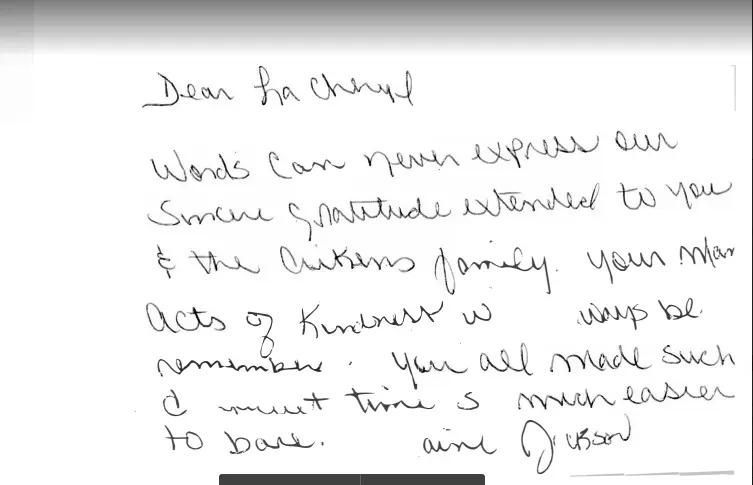 Dear La Cheryl
Words can never express our
Sincere gratitude extended to you
& the Aikens family. Your
acts of Kindness be
remember . You all made such
time s much easier
to bare.